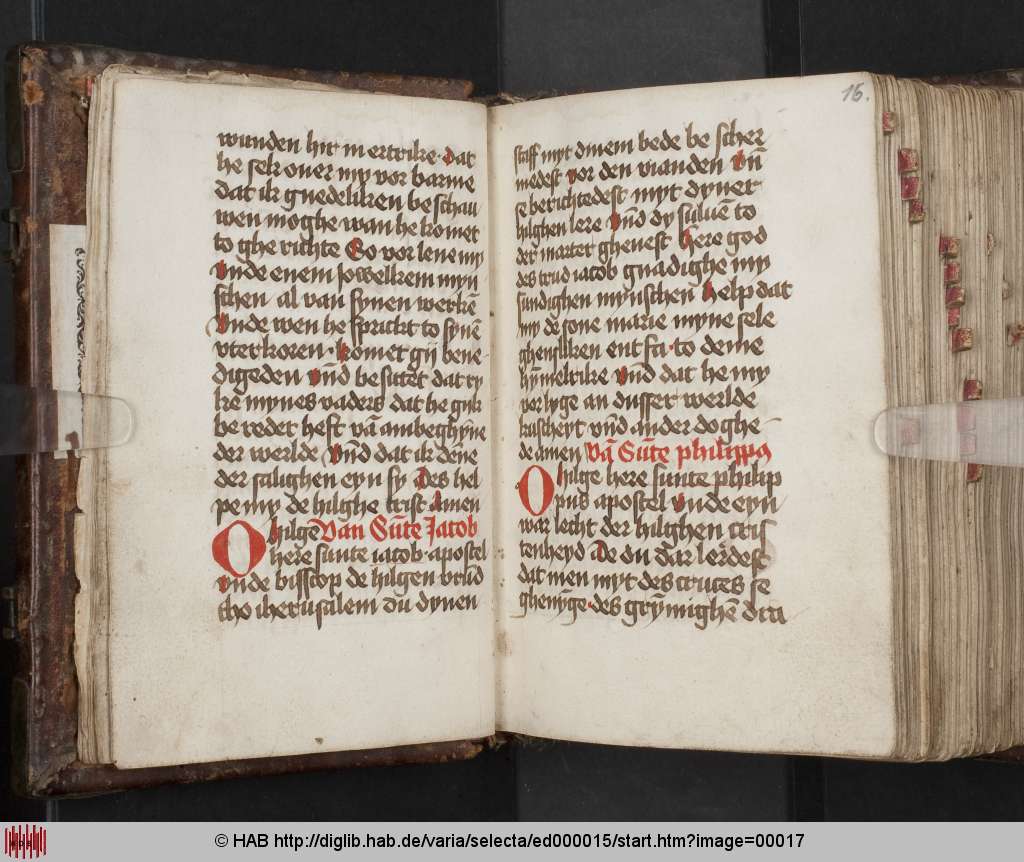 wunden hir in ertrike. Dat
he sek ouer my vor barme
dat ik gnedeliken be schau
wen moghe wan he komet
to ghe richte So vor lene my
vnde enem jowelkem myn
schen al van synen werkē
vnde wen he sprickt to synē
vterkoren. komet gij bene
digeden vn̄d besittet dat ry
ke mynes vaders dat he guk
be redet heft vā ambeghyne
der werlde vn̄d dat ik dene
der salighen eyn sy Des hel
pe my de hilghe crist Amen
O hilge Van Sūte Jacob
here sunte iacob. apostel
vnde bisscop de hilgen brud
tho iherusalem du dynen
16.
staff myt dinem bede be scher
medest vor den vianden vn̄
se berichtedest myt dyner
hilghen lere vnd dy suluē to
der marter gheuest here god
des brud iacob gnadighe my
sundighen mynschen help dat
my de sone marie myne sele
ghensliken ent fa. to deme
hȳmelrike vn̄d dat he my
vor lyge an dusser werlde
kuscheyt vn̄d ander doghe
de amen vā Sūte philippo
O hilge here sunte philip
pus apostel vnde eyn
war lecht der hilghen cris
tenheyd De du dar lerdest
dat men myt des cruces se
ghenyge. des grȳmighē dra
© HAB http://diglib.hab.de/varia/selecta/ed000015/start.htm?image=00017